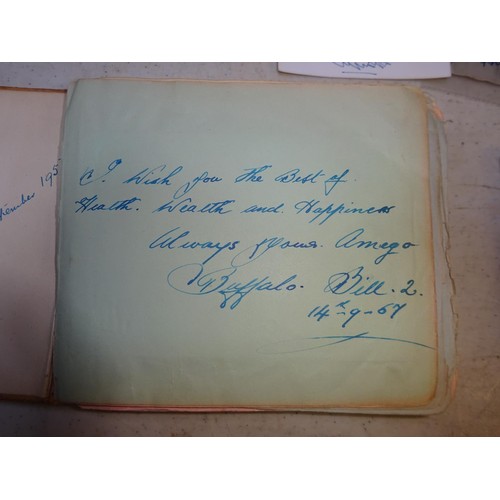 I. Wish you the Best of.
Health. Wealth and. Happiness
Always yours. Amego
Buffalo. Bill. 2.
14th-9-67